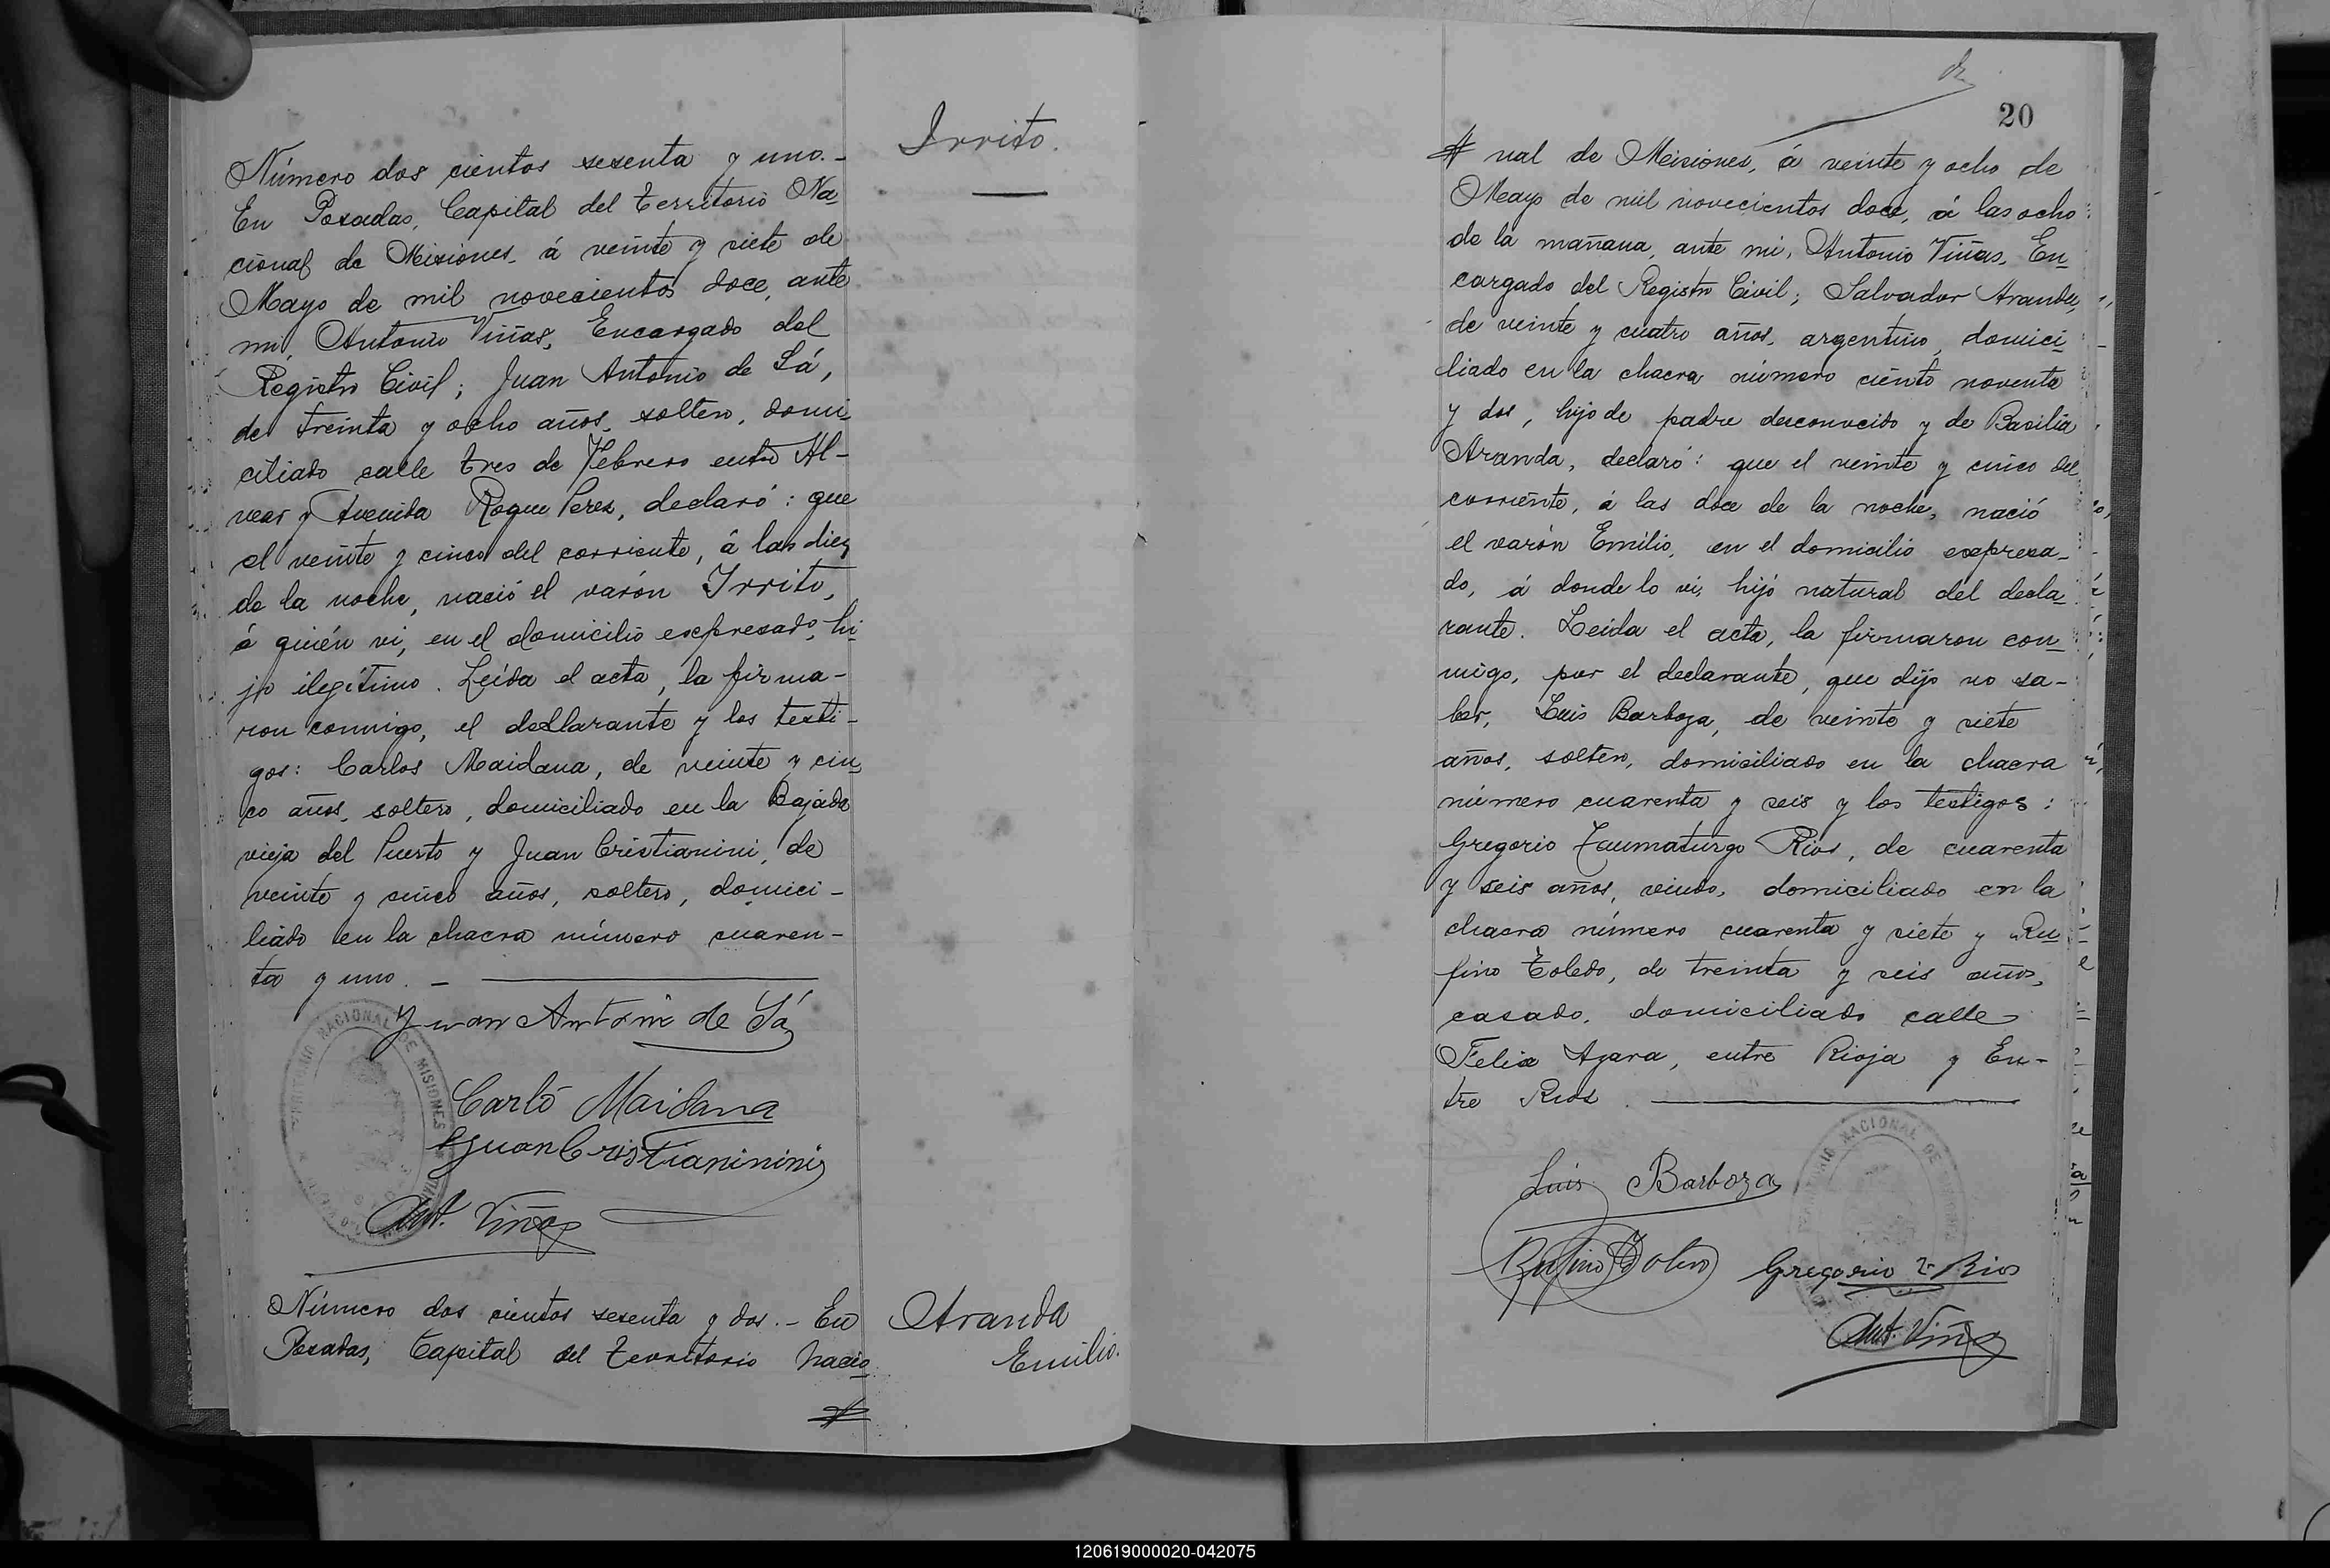 Número dos cientos sesenta y uno.-
En Posadas, Capital del Territorio Na
cional de Misiones, á veinte y siete de
Mayo de mil novecientos doce, ante
mi, Antonio Viñas, Encargado del
Registro Civil; Juan Antonio de Sá,
de treinta y ocho años, soltero, domi
ciliado calle tres de Febrero entre Al-
vear y Avenida Roque Perez, declaró: que
el veinte y cinco del corriente, á las diez
de la noche, nació el varón Irrito,
á quién vi, en el domicilio expresado, hi
jo ilegítimo. Leída el acta, la firma-
ron conmigo, el declarante y los testi-
gos: Carlos Maidana, de veinte y cin
co años, soltero, domiciliado en la Bajada
vieja del Puerto y Juan Cristianini, de
veinte y cinco años, soltero, domici-
liado en la chacra número cuaren-
ta y uno.-
Juan Antonio de Sá
Carlo Maidana
Juan Cristianinini
Ant. Viñas
TERRITORIO NACIONAL DE MISIONES
Número dos cientos sesenta y dos.- En
Posadas, Capital del Territorio Nacio
#
Irrito.
Aranda
Emilio.
20
# nal de Misiones, á veinte y ocho de
Mayo de mil novecientos doce, á las ocho
de la mañana, ante mi, Antonio Viñas, En
cargado del Registro Civil; Salvador Aranda,
de veinte y cuatro años, argentino, domici
liado en la chacra número ciento noventa
y dos, hijo de padre desconocido y de Basilia
Aranda, declaró: que el veinte y cinco del
corriente, á las doce de la noche, nació
el varón Emilio, en el domicilio expresa-
do, á donde lo vi, hijo natural del decla
rante. Leída el acta, la firmaron con
migo, por el declarante, que dijo no sa-
ber, Luis Barboza, de veinte y siete
años, soltero, domiciliado en la chacra
número cuarenta y seis y los testigos:
Gregorio Taumaturgo Rios, de cuarenta
y seis años, viudo, domiciliado en la
chacra número cuarenta y siete y Ru
fino Toledo, de treinta y seis años,
casado, domiciliado calle
Felix Azara, entre Rioja y En-
tre Rios.
Luis Barboza
Rufino Toledo
Gregorio T. Rios
Ant. Viñas
TERRITORIO NACIONAL DE
120619000020-042075